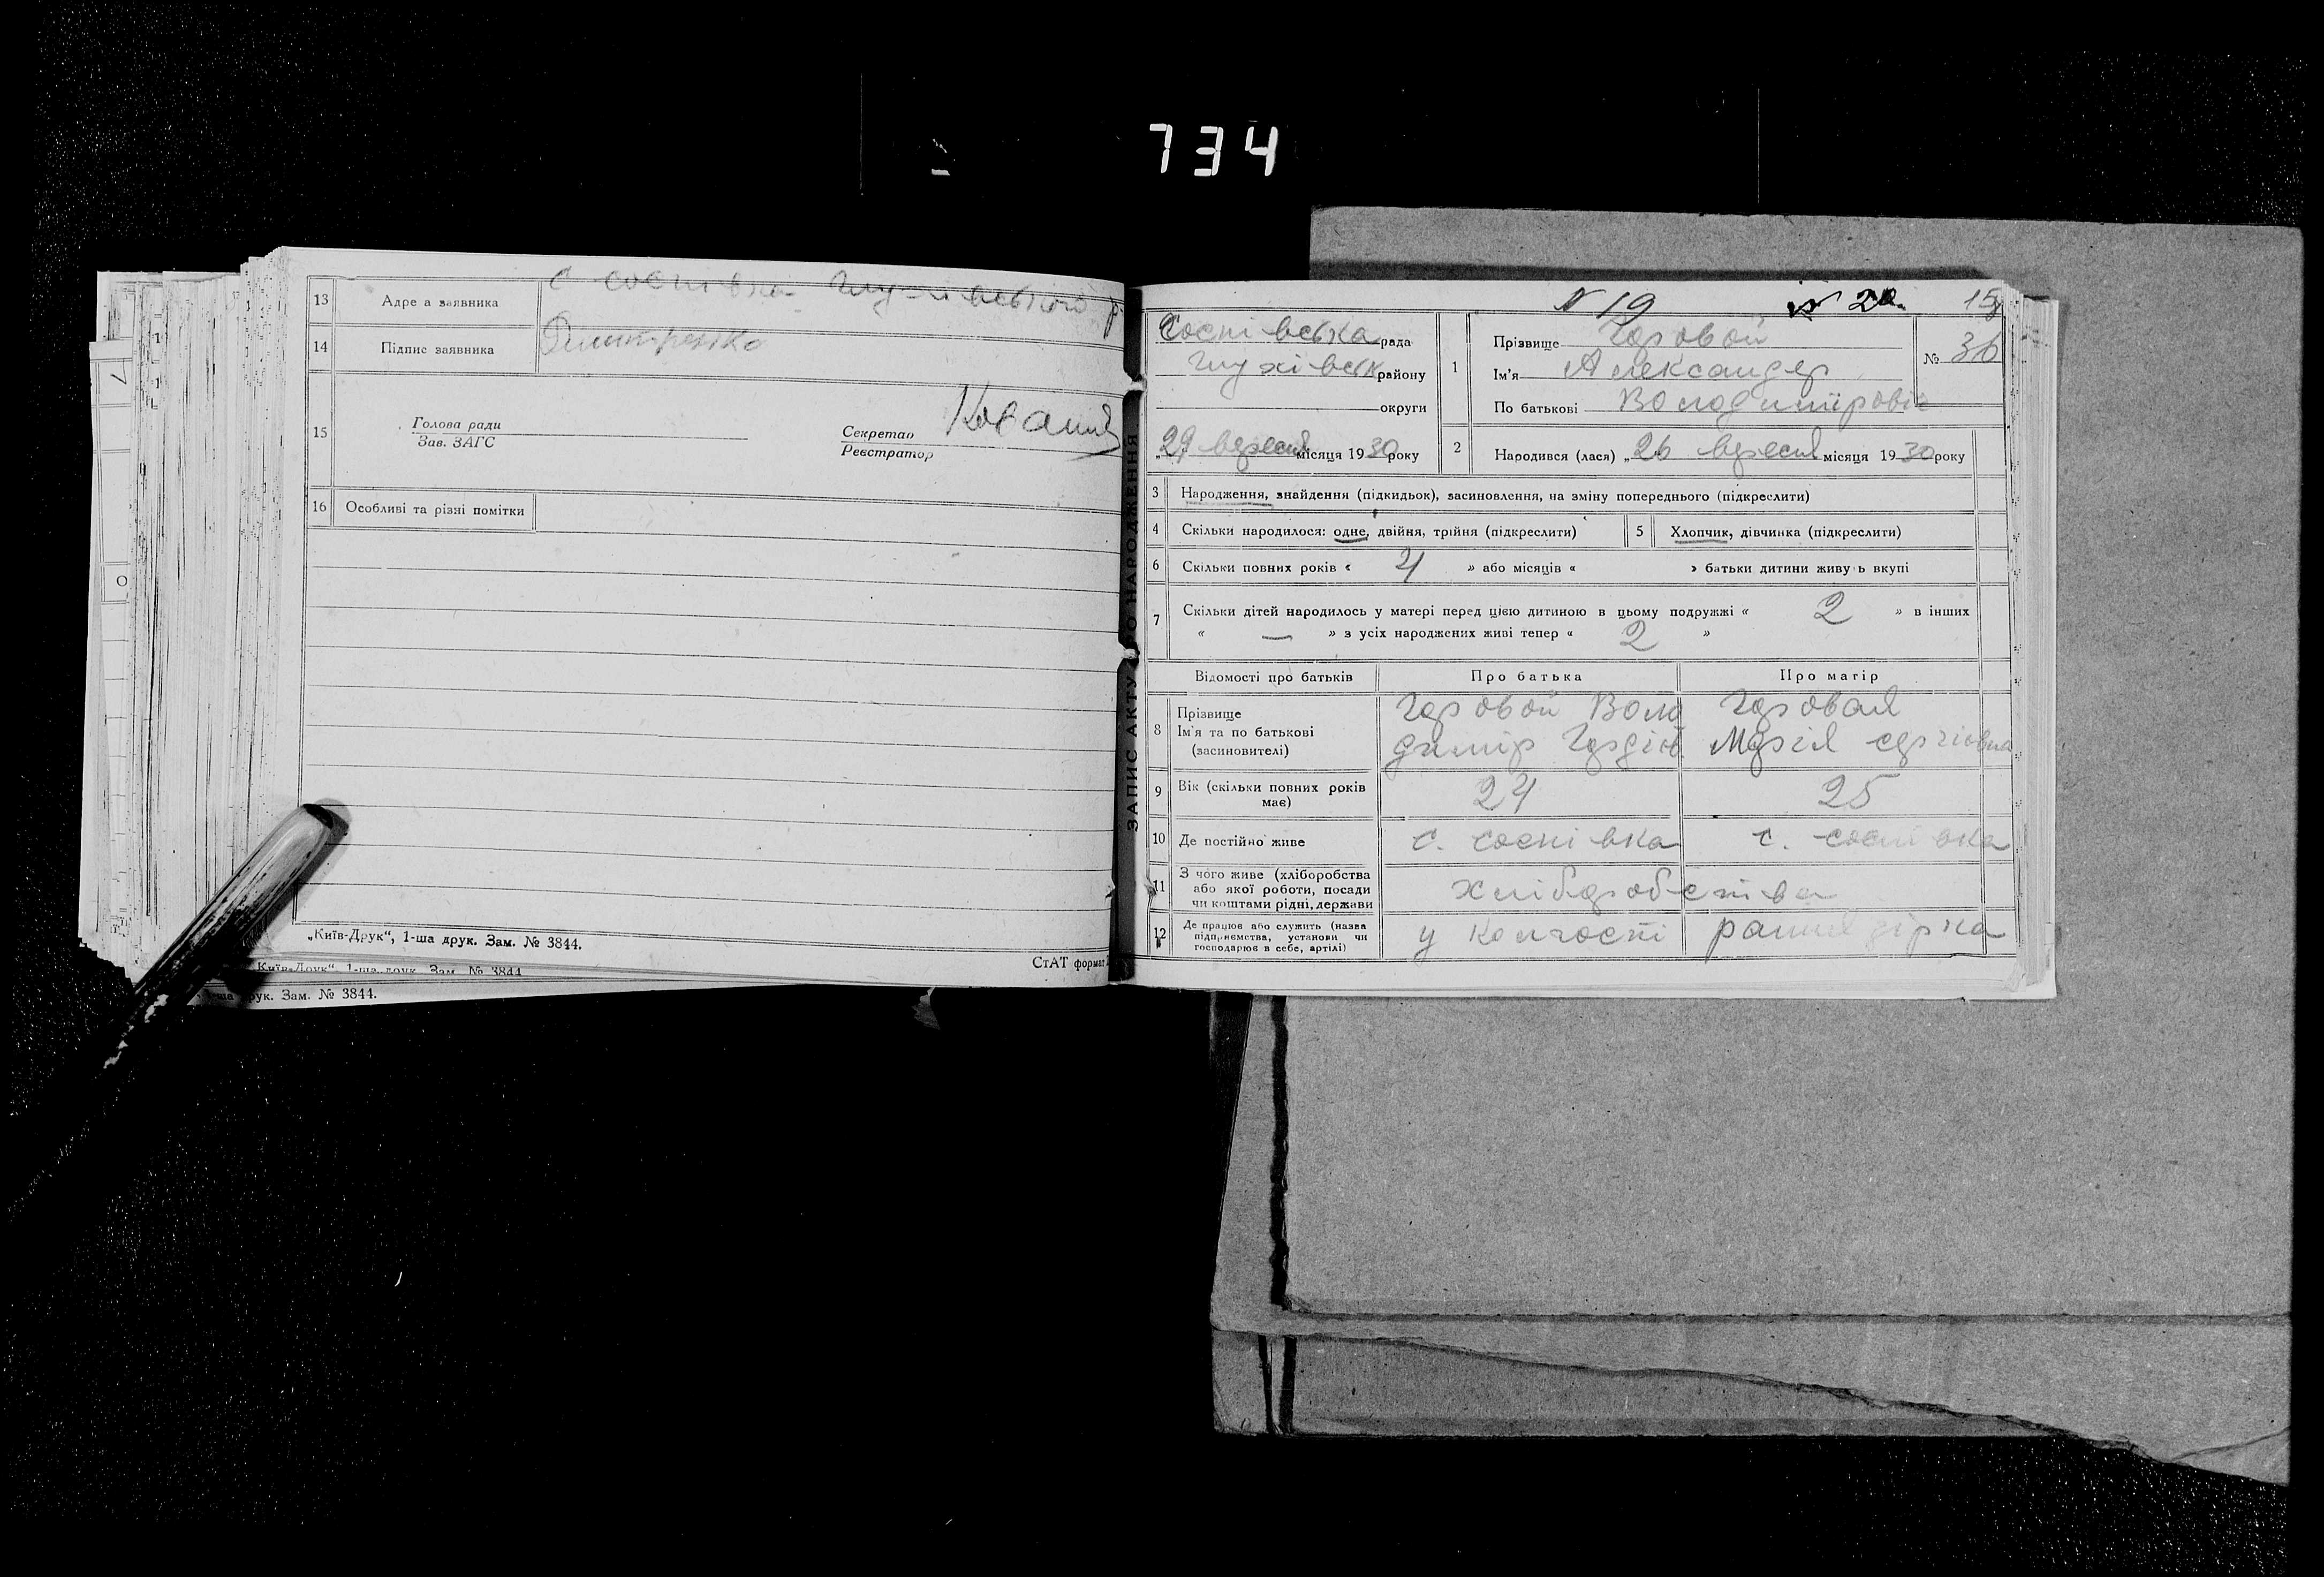 734
13 Адре а заявника С Соснівка Глухівського р.
14 Підпис заявника Дмитренко
15 Голова ради
Зав. ЗАГС
Секретар
Реєстратор
16 Особливі та різні помітки
„Київ-Друк“, 1-ша друк. Зам. № 3844.
СтАТ формат
Київ-Друк“ 1-ша друк Зам. № 3844
1-ша друк. Зам. № 3844.
ЗАПИС АКТУ ПРО НАРОДЖЕННЯ
N 19 N 20 15
Соснівська рада
Глухівськ району
округи
„29 вересня місяця 1930 року
1 Прізвище Горовой
Ім'я Александер
По батькові Володимірович
№ 36
2 Народився (лася) „26 вересня місяця 1930 року
3 Народження, знайдення (підкидьок), засиновлення, на зміну попереднього (підкреслити)
4 Скільки народилося: одне, двійня, трійня (підкреслити) 5 Хлопчик, дівчинка (підкреслити)
6 Скільки повних років « 4 » або місяців « » батьки дитини живуь вкупі
7 Скільки дітей народилось у матері перед цією дитиною в цьому подружжі « 2 » в інших
« — » з усіх народжених живі тепер « 2 »
Відомості про батьків Про батька Про матір
8 Прізвище
Ім'я та по батькові
(засновителі)
Горовой Воло
димір Гордіов
Горовая
Марія Сергіовна
9 Вік (скільки повних років
має) 24 25
10 Де постійно живе с. соснівка с. соснівка
11 З чого живе (хліборобства
або якої роботи, посади
чи коштами рідні, держави
хліборобства
12 Де працює або служить (назва
підприємства, установи чи
господарює в себе, артілі)
у колгоспі